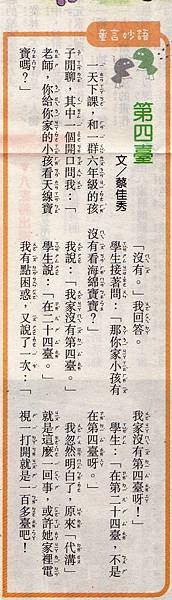 童言妙語
第四臺
文／蔡佳秀
一天下課，和一群六年級的孩
子閒聊，其中一個開口問我：「
老師，你給你家的小孩看天線寶
寶嗎？」
「沒有。」我回答。
學生接著問：「那你家小孩有
沒有看海綿寶寶？」
我說：「我家沒有第四臺。」
學生說：「在二十四臺。」
我有點困惑，又說了一次：「
我家沒有第四臺呀！」
學生：「在第二十四臺，不是
在第四臺呀。」
我忽然明白了，原來「代溝」
就是這麼一回事，或許她家裡電
視一打開就是一百多臺吧！